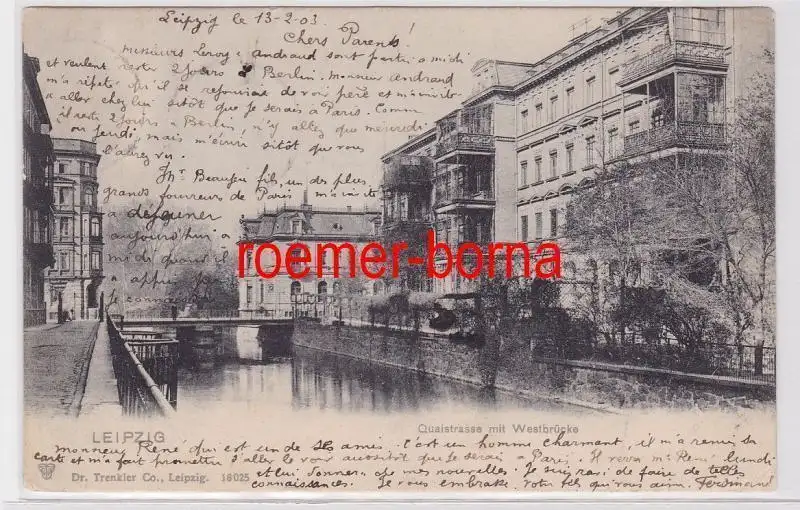 Leipzig le 13-2-03
Chers Parents!
Messieurs Leroy & Andraud sont partis à midi
et veulent rester 2 jours à Berlin. Monsieur Andraud
m'a répété qu'il se réjouirait de voir père et m'invite
à aller chez lui sitôt que je serais à Paris. Comme
il restera 2 jours à Berlin, n'y allez que mercredi
ou jeudi, mais m'écrire sitôt que vous
l'aurez vu.
Mr. Beaufeu fils, un des plus
grands foureurs de Paris m'a invité
à déjeuner
aujourd'hui à
midi quand il
a appris
connaissance
roemer-borna
LEIPZIG
Quaistrasse mit Westbrücke
monsieur René qui est un de ses amis. C'est un homme charmant, il m'a remis sa
carte et m'a fait promettre d'aller le voir aussitôt que je serais à Paris. Il verra Mr René lundi
et lui donnera de mes nouvelles. Je suis ravi de faire de telles
connaissances. Je vous embrasse, votre fils qui vous aime Ferdinand
Dr. Trenkler Co., Leipzig. 18025